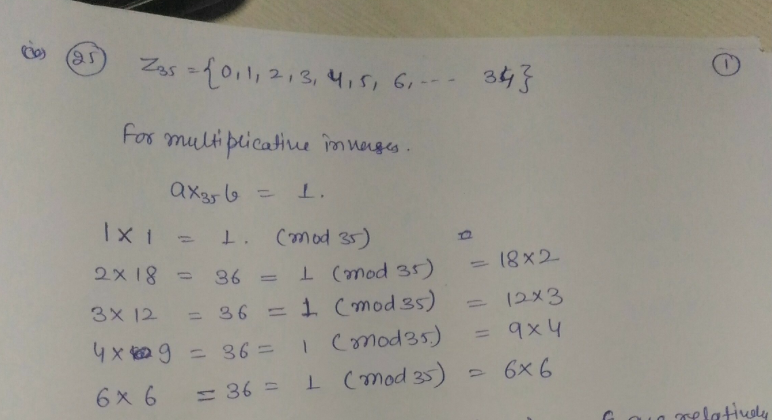 (iii) (25) Z₃₅ = {0, 1, 2, 3, 4, 5, 6, --- 34} (1)
For multiplicative inverses.
a ×₃₅ b = 1.
1 × 1 = 1. (mod 35)
2 × 18 = 36 = 1 (mod 35) = 18 × 2
3 × 12 = 36 = 1 (mod 35) = 12 × 3
4 × 9 = 36 = 1 (mod 35) = 9 × 4
6 × 6 = 36 = 1 (mod 35) = 6 × 6
relatively